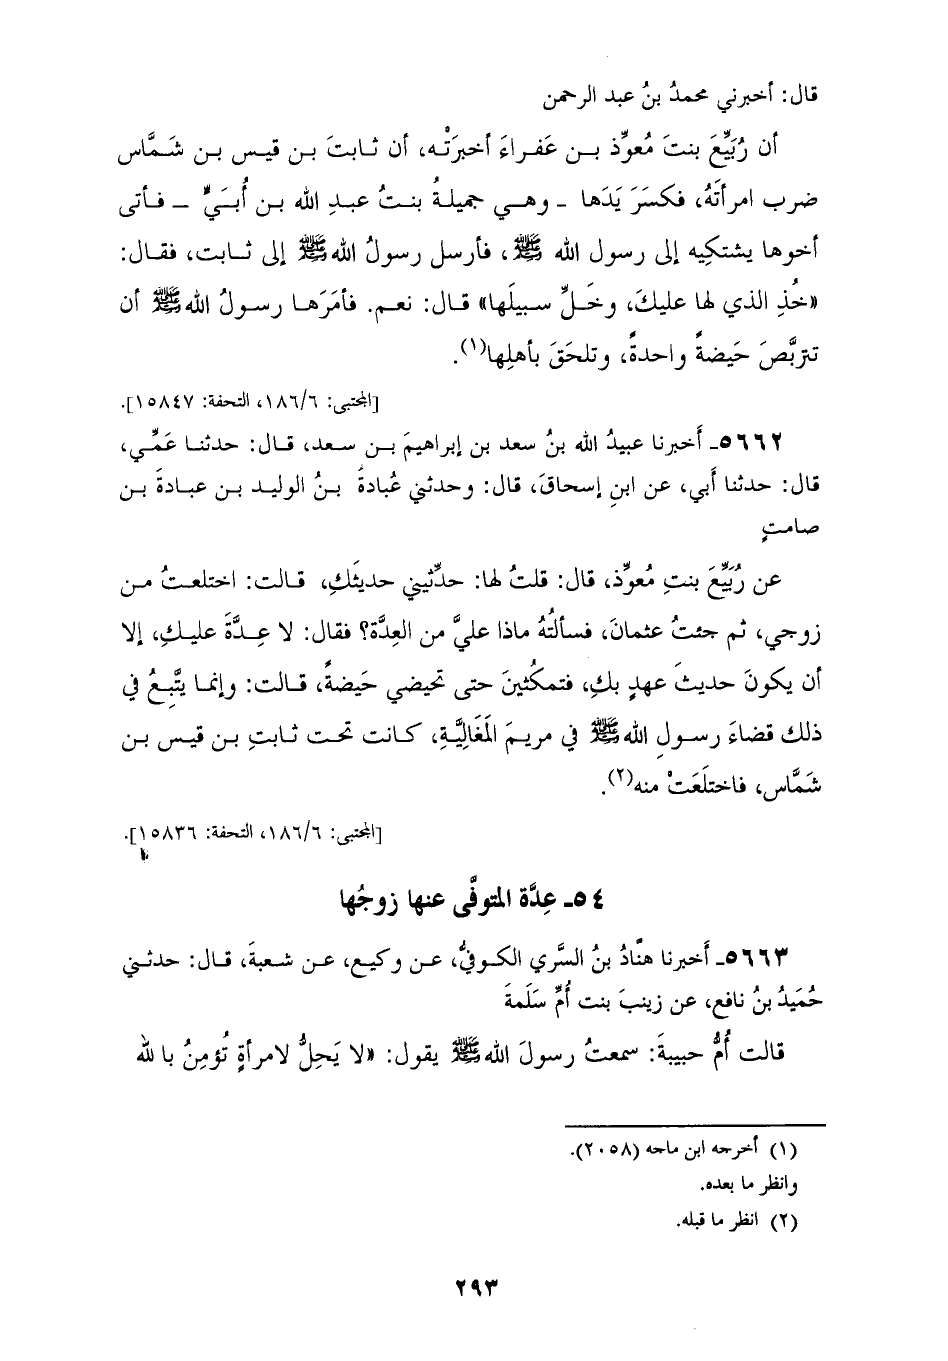 قال: أخبرني محمدُ بنُ عبد الرحمن
أن رُبَيِّعَ بنت مُعوِّذ بـن عَفـراءَ أخبرَتْـه، أن ثـابتَ بـن قيـس بـن شَـمَّاس
ضرب امرأتَهُ، فكسَرَ يَدَها - وهـي جميلـةُ بنـتُ عبـدِ الله بـن أُبـَيٍّ - فـأتى
أخوها يشتكِيه إلى رسول الله ﷺ، فأرسل رسولُ الله ﷺ إلى ثـابت، فقـال:
«خُذِ الذي لها عليكَ، وخَلِّ سـبيلَها» قال: نعـم. فأمَرَهـا رسـولُ الله ﷺ أن
تتربَّصَ حَيضةً واحدةً، وتلحَقَ بأهلِها(١).
[المجتبى: ١٨٦/٦، التحفة: ١٥٨٤٧].
٥٦٦٢ـ أَخبرنا عبيدُ الله بنُ سعد بن إبراهيمَ بـن سـعد، قـال: حدثنـا عَمِّـي،
قال: حدثنا أَبي، عن ابنِ إسحاقَ، قال: وحدثني عُبادةُ بـنُ الوليـد بـن عبـادةَ بـن
صامـتٍ
عن رُبَيِّعَ بنتِ مُعوِّذ، قال: قلتُ لها: حدِّثيني حديثَكِ، قـالت: اختلعـتُ مـن
زوجي، ثم جئتُ عثمانَ، فسألتُهُ ماذا عليَّ من العِدَّة؟ فقال: لا عِـدَّةَ عليـكِ، إلا
أن يكونَ حديثَ عهدٍ بكِ، فتمكُثينَ حتى تحيضي حَيضةً، قـالت: وإنمـا يتَّبِـعُ في
ذلك قضاءَ رسـولِ الله ﷺ في مريـمَ المَغَاليَّةِ، كـانت تحـت ثـابتِ بـن قيـس بـن
شَمَّاس، فاختلَعَتْ منه(٢).
[المجتبى: ١٨٦/٦، التحفة: ١٥٨٣٦].
٥٤ـ عِدَّة المتوفَّى عنها زوجُها
٥٦٦٣ـ أَخبرنا هنَّادُ بنُ السَّري الكـوفيُّ، عـن وكيـع، عـن شـعبةَ، قـال: حدثـني
حُمَيدُ بنُ نافع، عن زينبَ بنت أُمِّ سَلَمةَ
قالت أُمُّ حبيبةَ: سمعتُ رسولَ الله ﷺ يقول: «لا يَحِلُّ لامرأةٍ تُؤمِنُ بالله
(١) أخرجه ابن ماجه (٢٠٥٨).
وانظر ما بعده.
(٢) انظر ما قبله.
٢٩٣